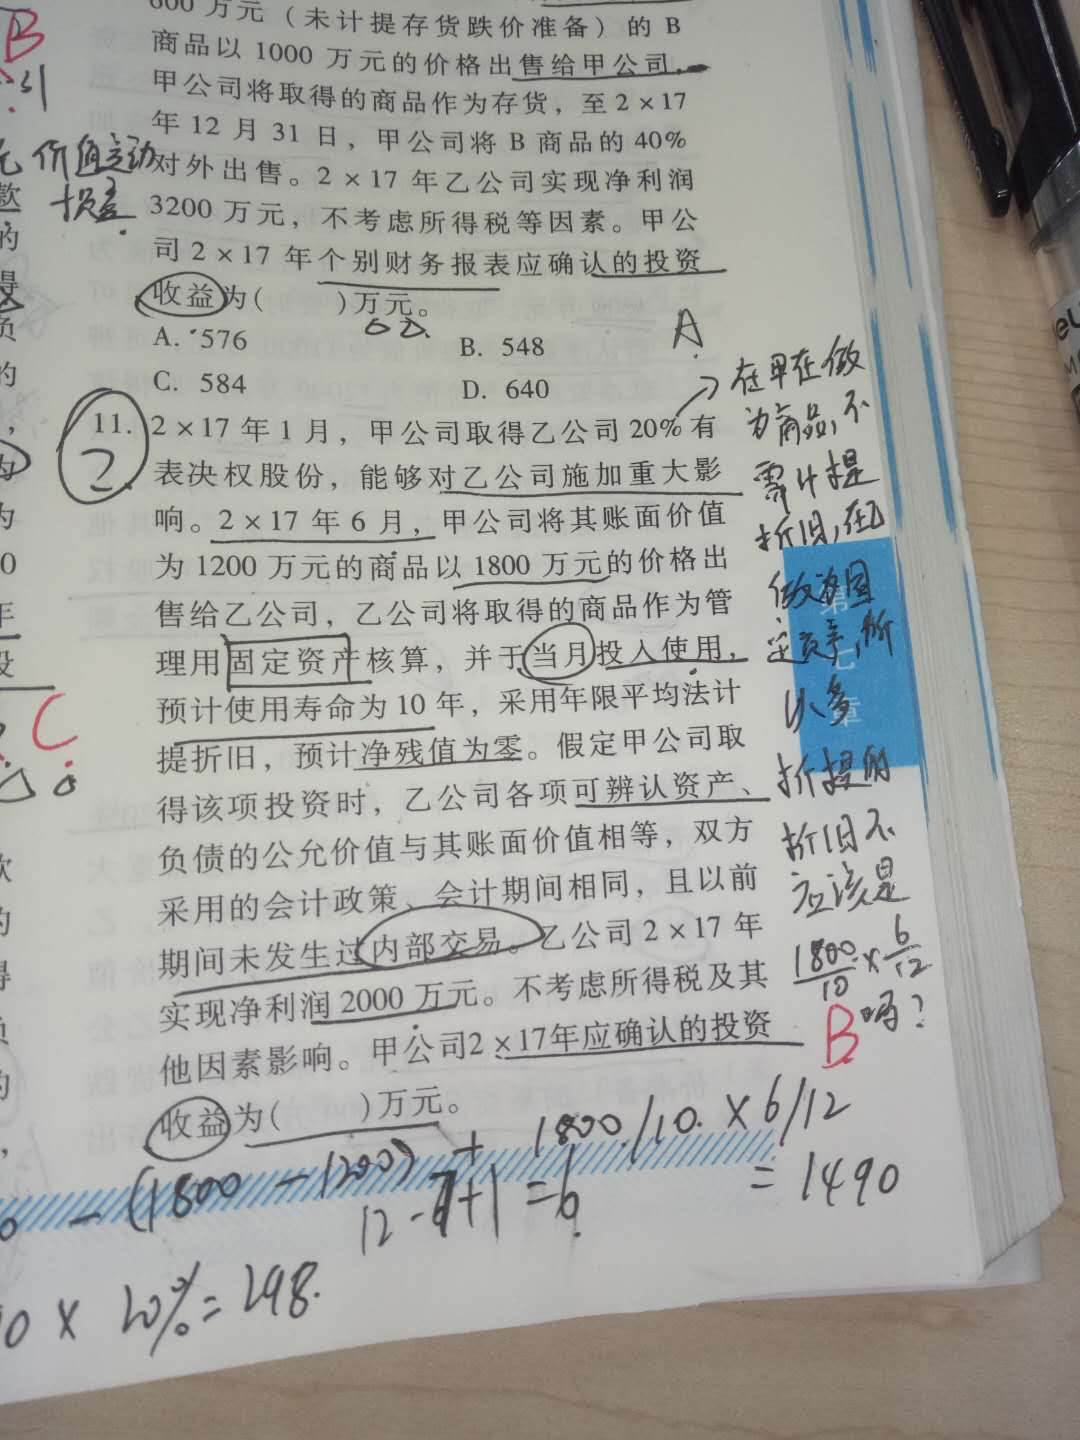 600 万元（未计提存货跌价准备）的 B
商品以 1000 万元的价格出售给甲公司，
甲公司将取得的商品作为存货，至 2×17
年 12 月 31 日，甲公司将 B 商品的 40%
对外出售。2×17 年乙公司实现净利润
3200 万元，不考虑所得税等因素。甲公
司 2×17 年个别财务报表应确认的投资
收益为(　　)万元。
A. 576
B. 548
C. 584
D. 640
A
11. 2×17 年 1 月，甲公司取得乙公司 20% 有
表决权股份，能够对乙公司施加重大影
响。2×17 年 6 月，甲公司将其账面价值
为 1200 万元的商品以 1800 万元的价格出
售给乙公司，乙公司将取得的商品作为管
理用固定资产核算，并于当月投入使用，
预计使用寿命为 10 年，采用年限平均法计
提折旧，预计净残值为零。假定甲公司取
得该项投资时，乙公司各项可辨认资产、
负债的公允价值与其账面价值相等，双方
采用的会计政策、会计期间相同，且以前
期间未发生过内部交易。乙公司 2×17 年
实现净利润 2000 万元。不考虑所得税及其
他因素影响。甲公司2×17年应确认的投资
收益为(　　)万元。
2
在甲在做
为商品，不
需计提
折旧，在乙
做为固
定资产，所
以多
折提的
折旧不
应该是
1800/10 × 6/12
吗？
B
第七章
- (1800 - 1200) + 1800/10 × 6/12
= 1490
12 - 7 + 1 = 6
0 × 20% = 298.
B
价值变动
损益
C